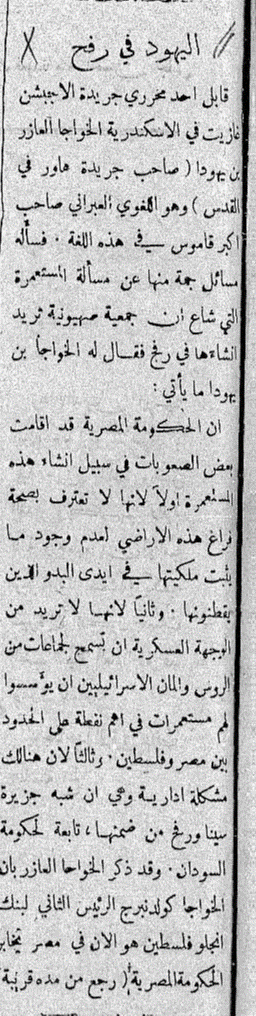 اليهود في رفح
قابل احد محرري جريدة الاجبشن
غازيت في الاسكندرية الخواجا العازر
بن يهودا ( صاحب جريدة هاور في
القدس ) وهو اللغوي العبراني صاحب
اكبر قاموس في هذه اللغة . فسأله
مسائل جمة منها عن مسألة المستعمرة
التي شاع ان جمعية صهيونية تريد
انشاءها في رفح فقال له الخواجا بن
يهودا ما يأتي :
ان الحكومة المصرية قد اقامت
بعض الصعوبات في سبيل انشاء هذه
المستعمرة اولاً لانها لا تعترف بصحة
فراغ هذه الاراضي لعدم وجود ما
يثبت ملكيتها في ايدى البدو الذين
يقطنونها . وثانياً لانها لا تريد من
الوجهة العسكرية ان تسمح لجماعات من
الروس والمان الاسرائيليين ان يؤسسوا
لهم مستعمرات في اهم نقطة على الحدود
بين مصر وفلسطين . وثالثاً لان هنالك
مشكلة ادارية وهي ان شبه جزيرة
سينا ورفح من ضمنها ، تابعة لحكومة
السودان . وقد ذكر الخواجا العازر بان
الخواجا كولدنبرج الرئيس الثاني لبنك
انجلو فلسطين هو الان في مصر تيخابر
الحكومة المصرية ( رجع من مده قريبة